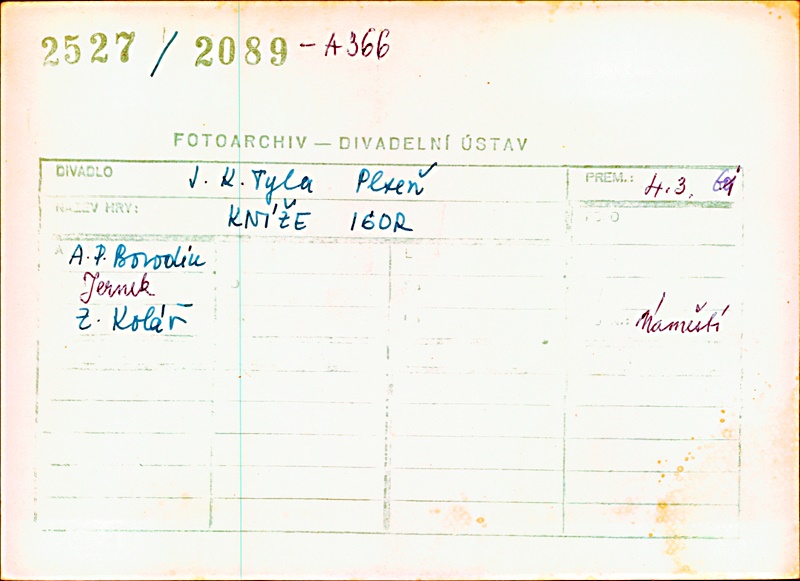 2527 / 2089 - A366
FOTOARCHIV — DIVADELNÍ ÚSTAV
DIVADLO J. K. Tyla Plzeň PREM.: 4.3.
NÁZEV HRY: KNÍŽE IGOR
A. P. Borodin
Jernek
Z. Kolář
Náměstí